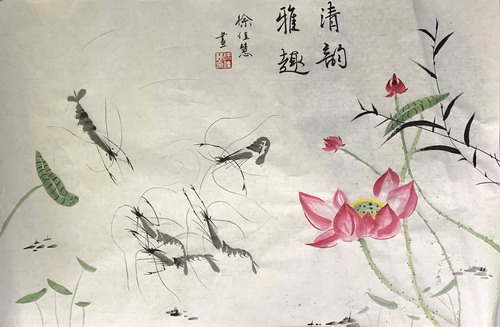 清韵
雅趣
徐佳慧
画